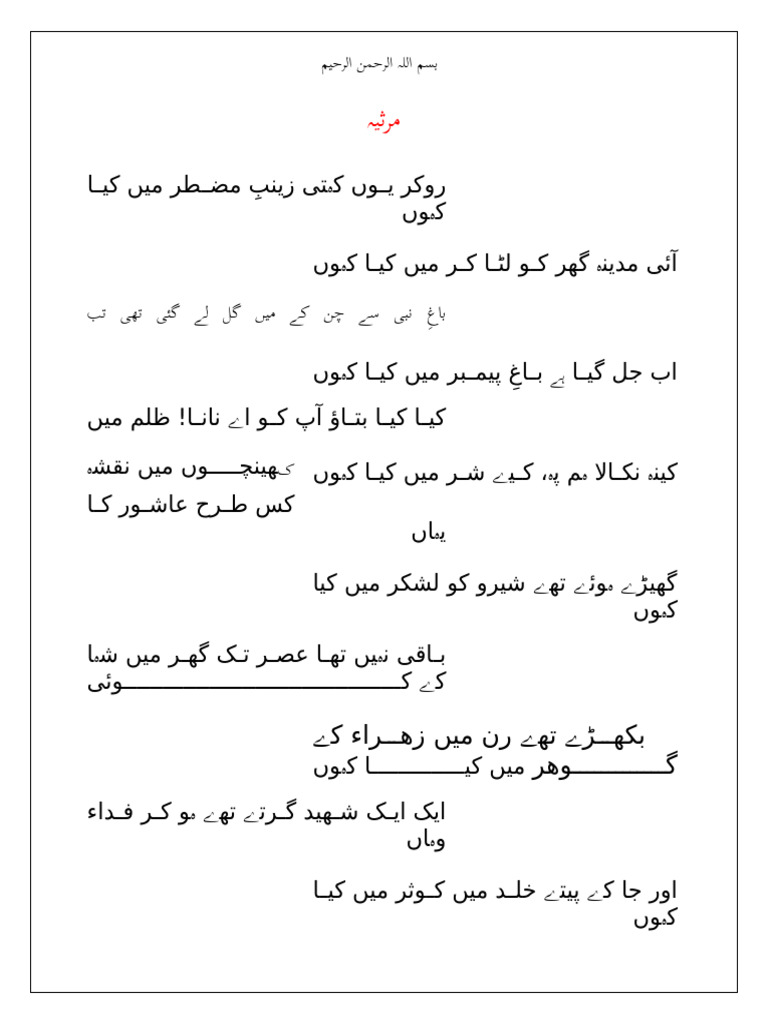 بسم اللہ الرحمن الرحیم
مرثیہ
روکر یوں کہتی زینبِ مضطر میں کیا
کہوں
آئی مدینہ گھر کو لٹا کر میں کیا کہوں
باغِ نبی سے چن کے میں گل لے گئی تھی تب
اب جل گیا ہے باغِ پیمبر میں کیا کہوں
کیا کیا بتاؤ آپ کو اے نانا! ظلم میں
کینہ نکالا ہم پہ، کیے شر میں کیا کہوں
کھینچوں میں نقشہ
کس طرح عاشور کا
یہاں
گھیڑے ہوئے تھے شیرو کو لشکر میں کیا
کہوں
باقی نہیں تھا عصر تک گھر میں شہا
کے کوئی
بکھڑے تھے رن میں زھراء کے
گوھر میں کیا کہوں
ایک ایک شہید گرتے تھے ہو کر فداء
وہاں
اور جا کے پیتے خلد میں کوثر میں کیا
کہوں